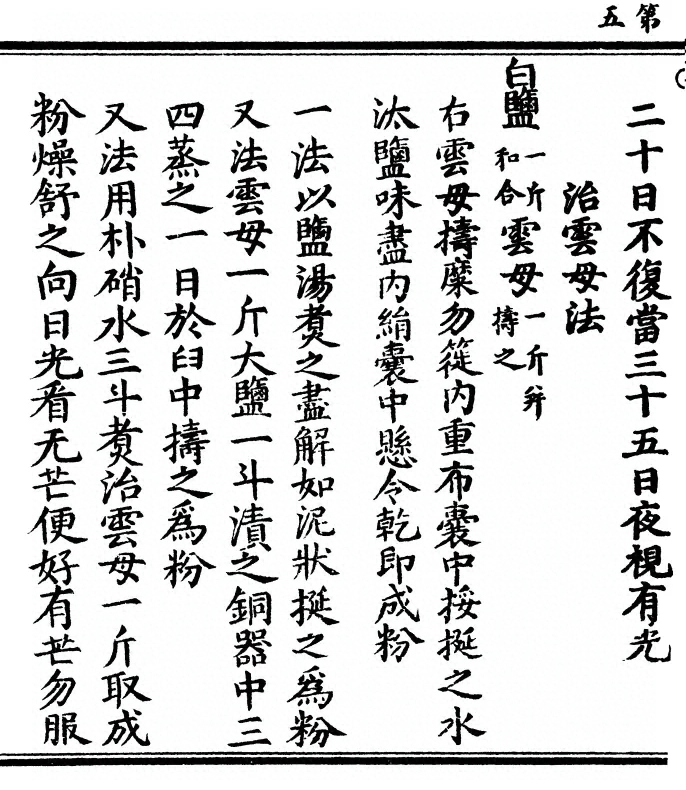 第五
二十日不復當三十五日夜視有光
治雲母法
白鹽一斤和合雲母一斤并擣之
右雲母擣糜勿篵内重布囊中挼挻之水
汰鹽味盡内絹囊中懸令乾即成粉
一法以鹽湯煑之盡解如泥狀挻之爲粉
又法雲母一斤大鹽一斗漬之銅器中三
四蒸之一日於臼中擣之爲粉
又法用朴硝水三斗煑治雲母一斤取成
粉燥舒之向日光看无芒便好有芒勿服